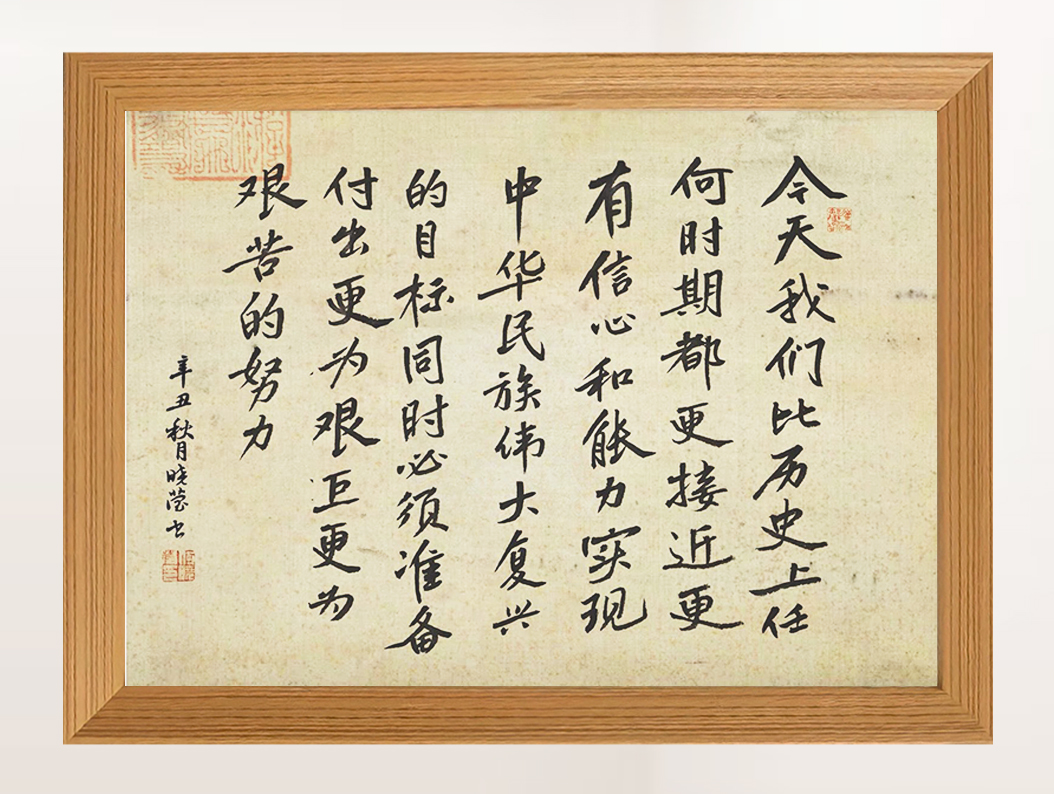 今天我们比历史上任
何时期都更接近更
有信心和能力实现
中华民族伟大复兴
的目标同时必须准备
付出更为艰巨更为
艰苦的努力
辛丑秋月晓莹书